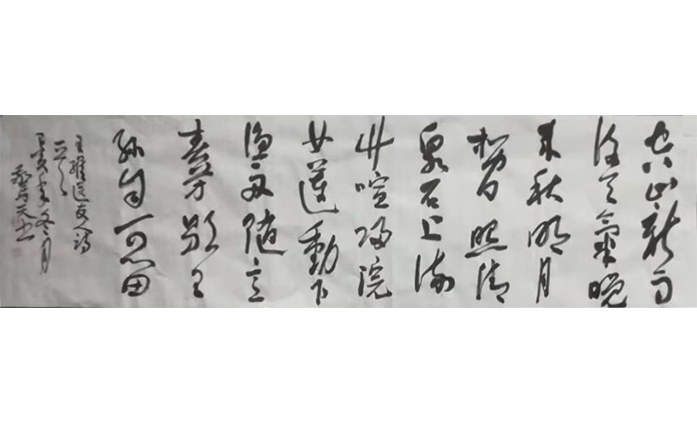 空山新雨
後天氣晚
来秋明月
松间照清
泉石上流
竹喧归浣
女莲動下
渔舟随意
春芳歇王
孙自可留
王維送友人诗
己亥年冬月